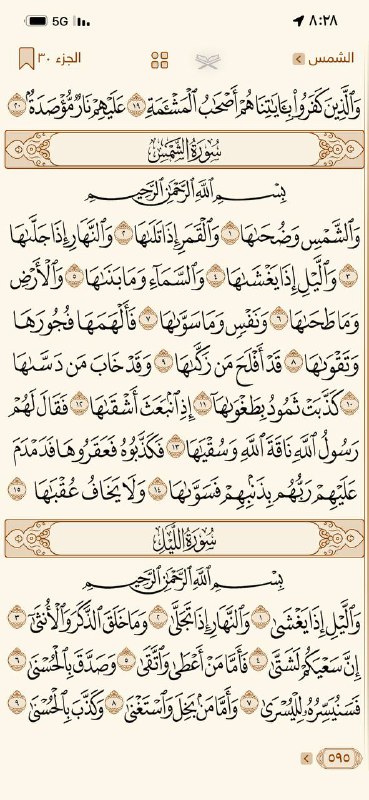 ٨:٢٨ 5G
الشمس الجزء ٣٠
وَٱلَّذِينَ كَفَرُوا۟ بِـَٔايَـٰتِنَا هُمْ أَصْحَـٰبُ ٱلْمَشْـَٔمَةِ ١٩ عَلَيْهِمْ نَارٌ مُّؤْصَدَةٌۢ ٢٠
سُورَةُ الشَّمْسِ
بِسْمِ ٱللَّهِ ٱلرَّحْمَـٰنِ ٱلرَّحِيمِ
وَٱلشَّمْسِ وَضُحَىٰهَا ١ وَٱلْقَمَرِ إِذَا تَلَىٰهَا ٢ وَٱلنَّهَارِ إِذَا جَلَّىٰهَا
٣ وَٱلَّيْلِ إِذَا يَغْشَىٰهَا ٤ وَٱلسَّمَآءِ وَمَا بَنَىٰهَا ٥ وَٱلْأَرْضِ
وَمَا طَحَىٰهَا ٦ وَنَفْسٍ وَمَا سَوَّىٰهَا ٧ فَأَلْهَمَهَا فُجُورَهَا
وَتَقْوَىٰهَا ٨ قَدْ أَفْلَحَ مَن زَكَّىٰهَا ٩ وَقَدْ خَابَ مَن دَسَّىٰهَا
١٠ كَذَّبَتْ ثَمُودُ بِطَغْوَىٰهَآ ١١ إِذِ ٱنۢبَعَثَ أَشْقَىٰهَا ١٢ فَقَالَ لَهُمْ
رَسُولُ ٱللَّهِ نَاقَةَ ٱللَّهِ وَسُقْيَـٰهَا ١٣ فَكَذَّبُوهُ فَعَقَرُوهَا فَدَمْدَمَ
عَلَيْهِمْ رَبُّهُم بِذَنۢبِهِمْ فَسَوَّىٰهَا ١٤ وَلَا يَخَافُ عُقْبَـٰهَا ١٥
سُورَةُ اللَّيْلِ
بِسْمِ ٱللَّهِ ٱلرَّحْمَـٰنِ ٱلرَّحِيمِ
وَٱلَّيْلِ إِذَا يَغْشَىٰ ١ وَٱلنَّهَارِ إِذَا تَجَلَّىٰ ٢ وَمَا خَلَقَ ٱلذَّكَرَ وَٱلْأُنثَىٰٓ ٣
إِنَّ سَعْيَكُمْ لَشَتَّىٰ ٤ فَأَمَّا مَنْ أَعْطَىٰ وَٱتَّقَىٰ ٥ وَصَدَّقَ بِٱلْحُسْنَىٰ ٦
فَسَنُيَسِّرُهُۥ لِلْيُسْرَىٰ ٧ وَأَمَّا مَنۢ بَخِلَ وَٱسْتَغْنَىٰ ٨ وَكَذَّبَ بِٱلْحُسْنَىٰ ٩
٥٩٥